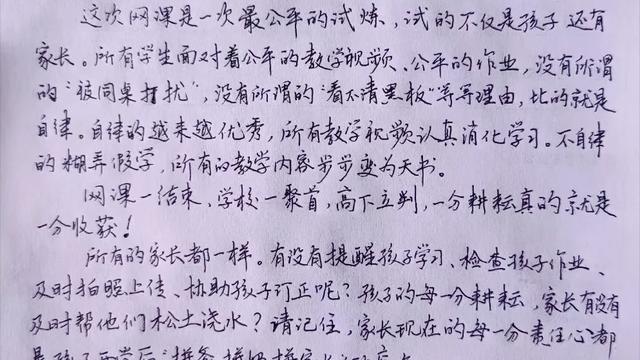 这次网课是一次最公平的试炼,试的不仅是孩子还有
家长。所有学生面对着公平的教学视频、公平的作业,没有所谓
的“被同桌打扰”,没有所谓的“看不清黑板”等等理由,比的就是
自律。自律的越来越优秀,所有教学视频认真消化学习。不自律
的糊弄假学,所有的教学内容步步变为天书。
网课一结束,学校一聚首,高下立判,一分耕耘真的就是
一分收获!
所有的家长都一样。有没有提醒孩子学习、检查孩子作业、
及时拍照上传、协助孩子订正呢?孩子的每一分耕耘,家长有没有
及时帮他们松土浇水?请记住,家长现在的每一分责任心都
是孩子开学后